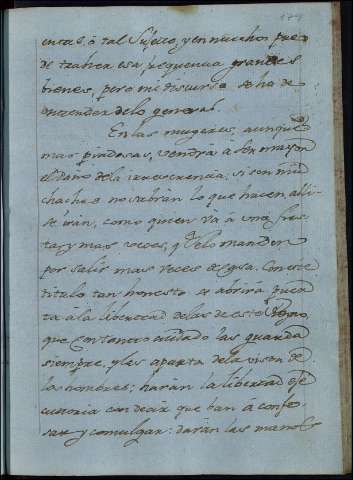 179
entas, ô tal Sujeto, y en muchos pue
de traher esa frequencia grandes
bienes, pero mi discurso se ha de
entender de lo general.
En las mugeres, aunque
mas piadosas, vendrà à ser mayor
el daño de la irreverencia; si son mu
chachas no sabràn lo que hacen, alli
se iràn, como quien và à una fies
ta, y mas veces, q.e se lo manden
por salir mas veces de casa. Con este
titulo tan honesto se abrirà puer
ta à la libertad de las de este Reyno,
que con tanto cuidado las guarda
siempre, y las aparta de la vista de
los hombres; haràn la libertad exe
cutoria con decir que van à confe
sar y comulgar: daràn las manos